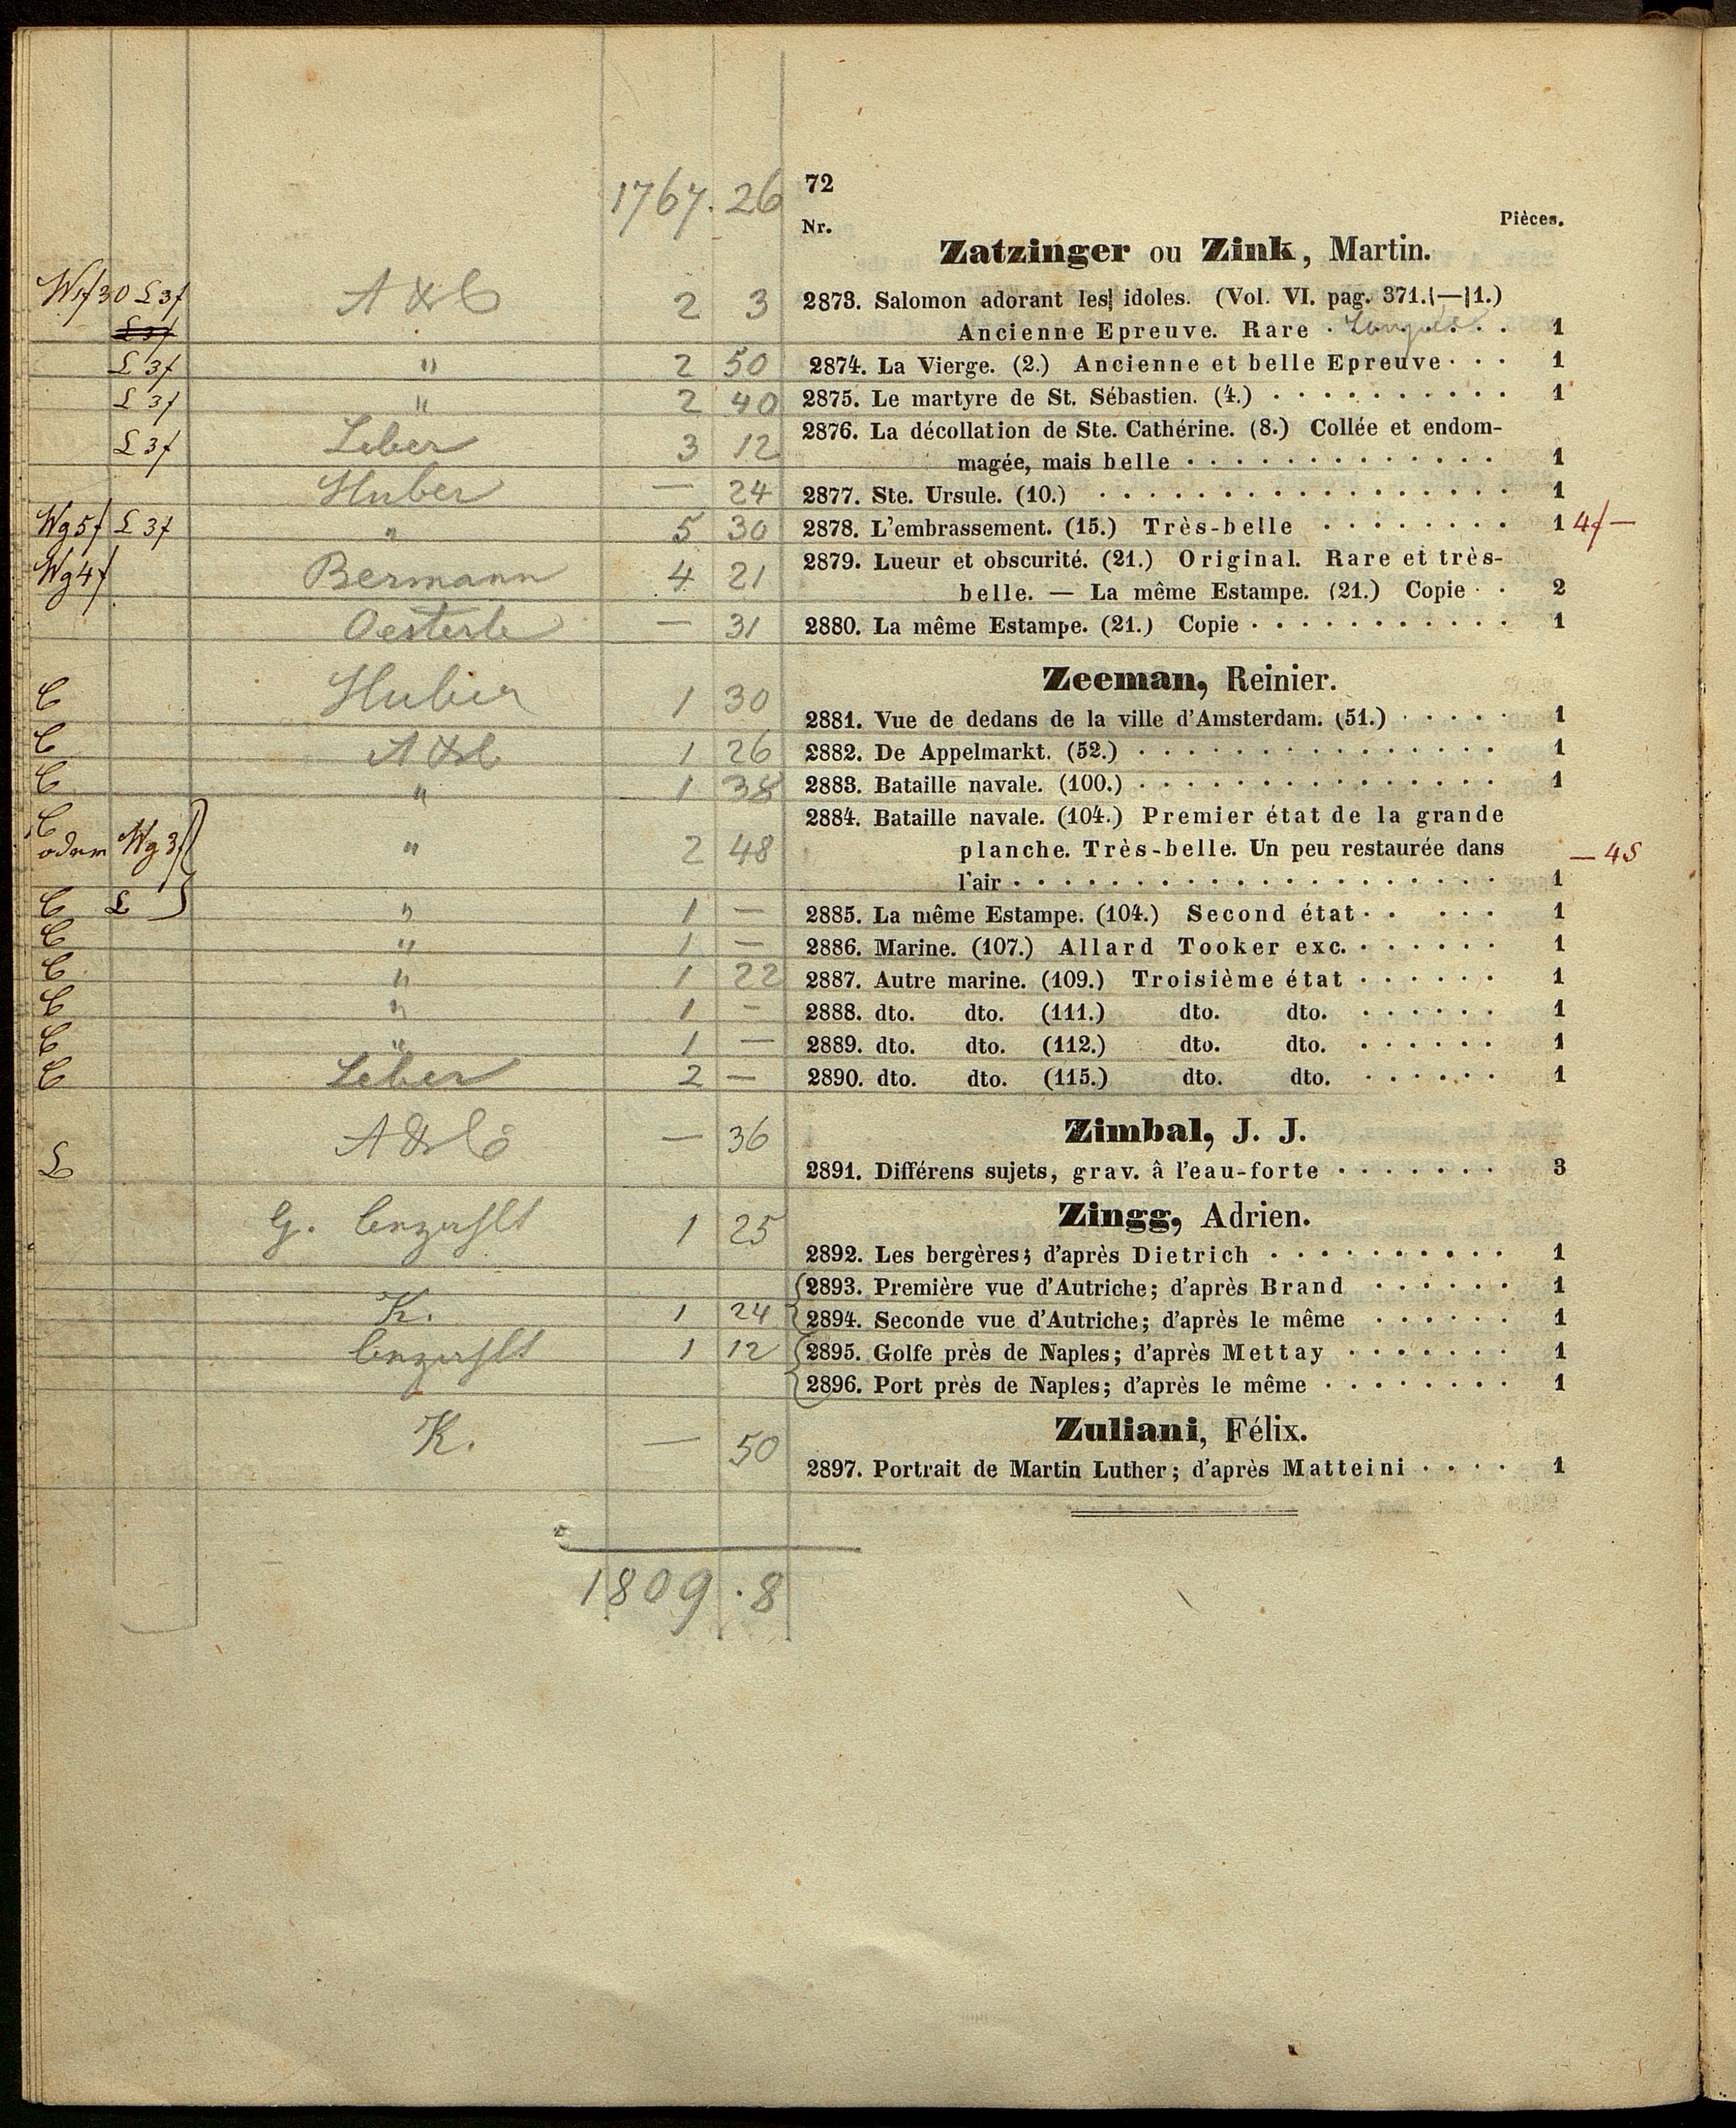 1767. 26
72
Nr.
Pièces.
Zatzinger ou Zink, Martin.
A & C 2 3 2873. Salomon adorant les idoles. (Vol. VI. pag. 371.—1.)
L 3f Ancienne Epreuve. Rare 1
L 3f " 2 50 2874. La Vierge. (2.) Ancienne et belle Epreuve 1
L 3f " 2 40 2875. Le martyre de St. Sébastien. (4.) 1
L 3f Leber 3 12 2876. La décollation de Ste. Cathérine. (8.) Collée et endom-
magée, mais belle 1
Huber — 24 2877. Ste. Ursule. (10.) 1
Wg 5f L 3f " 5 30 2878. L'embrassement. (15.) Très-belle 1 4f —
Wg 4f Bermann 4 21 2879. Lueur et obscurité. (21.) Original. Rare et très-
belle. — La même Estampe. (21.) Copie 2
Oesterle — 31 2880. La même Estampe. (21.) Copie 1
Zeeman, Reinier.
C Huber 1 30 2881. Vue de dedans de la ville d'Amsterdam. (51.) 1
C A & C 1 26 2882. De Appelmarkt. (52.) 1
C " 1 38 2883. Bataille navale. (100.) 1
C 2884. Bataille navale. (104.) Premier état de la grande
oder Wg 3f " 2 48 planche. Très-belle. Un peu restaurée dans — 45
l'air 1
C L " 1 — 2885. La même Estampe. (104.) Second état 1
C " 1 — 2886. Marine. (107.) Allard Tooker exc. 1
C " 1 22 2887. Autre marine. (109.) Troisième état 1
C " 1 — 2888. dto. dto. (111.) dto. dto. 1
C " 1 — 2889. dto. dto. (112.) dto. dto. 1
C Leber 2 — 2890. dto. dto. (115.) dto. dto. 1
Zimbal, J. J.
A & C — 36
L 2891. Différens sujets, grav. â l'eau-forte 3
Zingg, Adrien.
G. bezahlt 1 25 2892. Les bergères; d'après Dietrich 1
2893. Première vue d'Autriche; d'après Brand 1
K. 1 24 2894. Seconde vue d'Autriche; d'après le même 1
bezahlt 1 12 2895. Golfe près de Naples; d'après Mettay 1
2896. Port près de Naples; d'après le même 1
Zuliani, Félix.
K. — 50 2897. Portrait de Martin Luther; d'après Matteini 1
1809 . 8